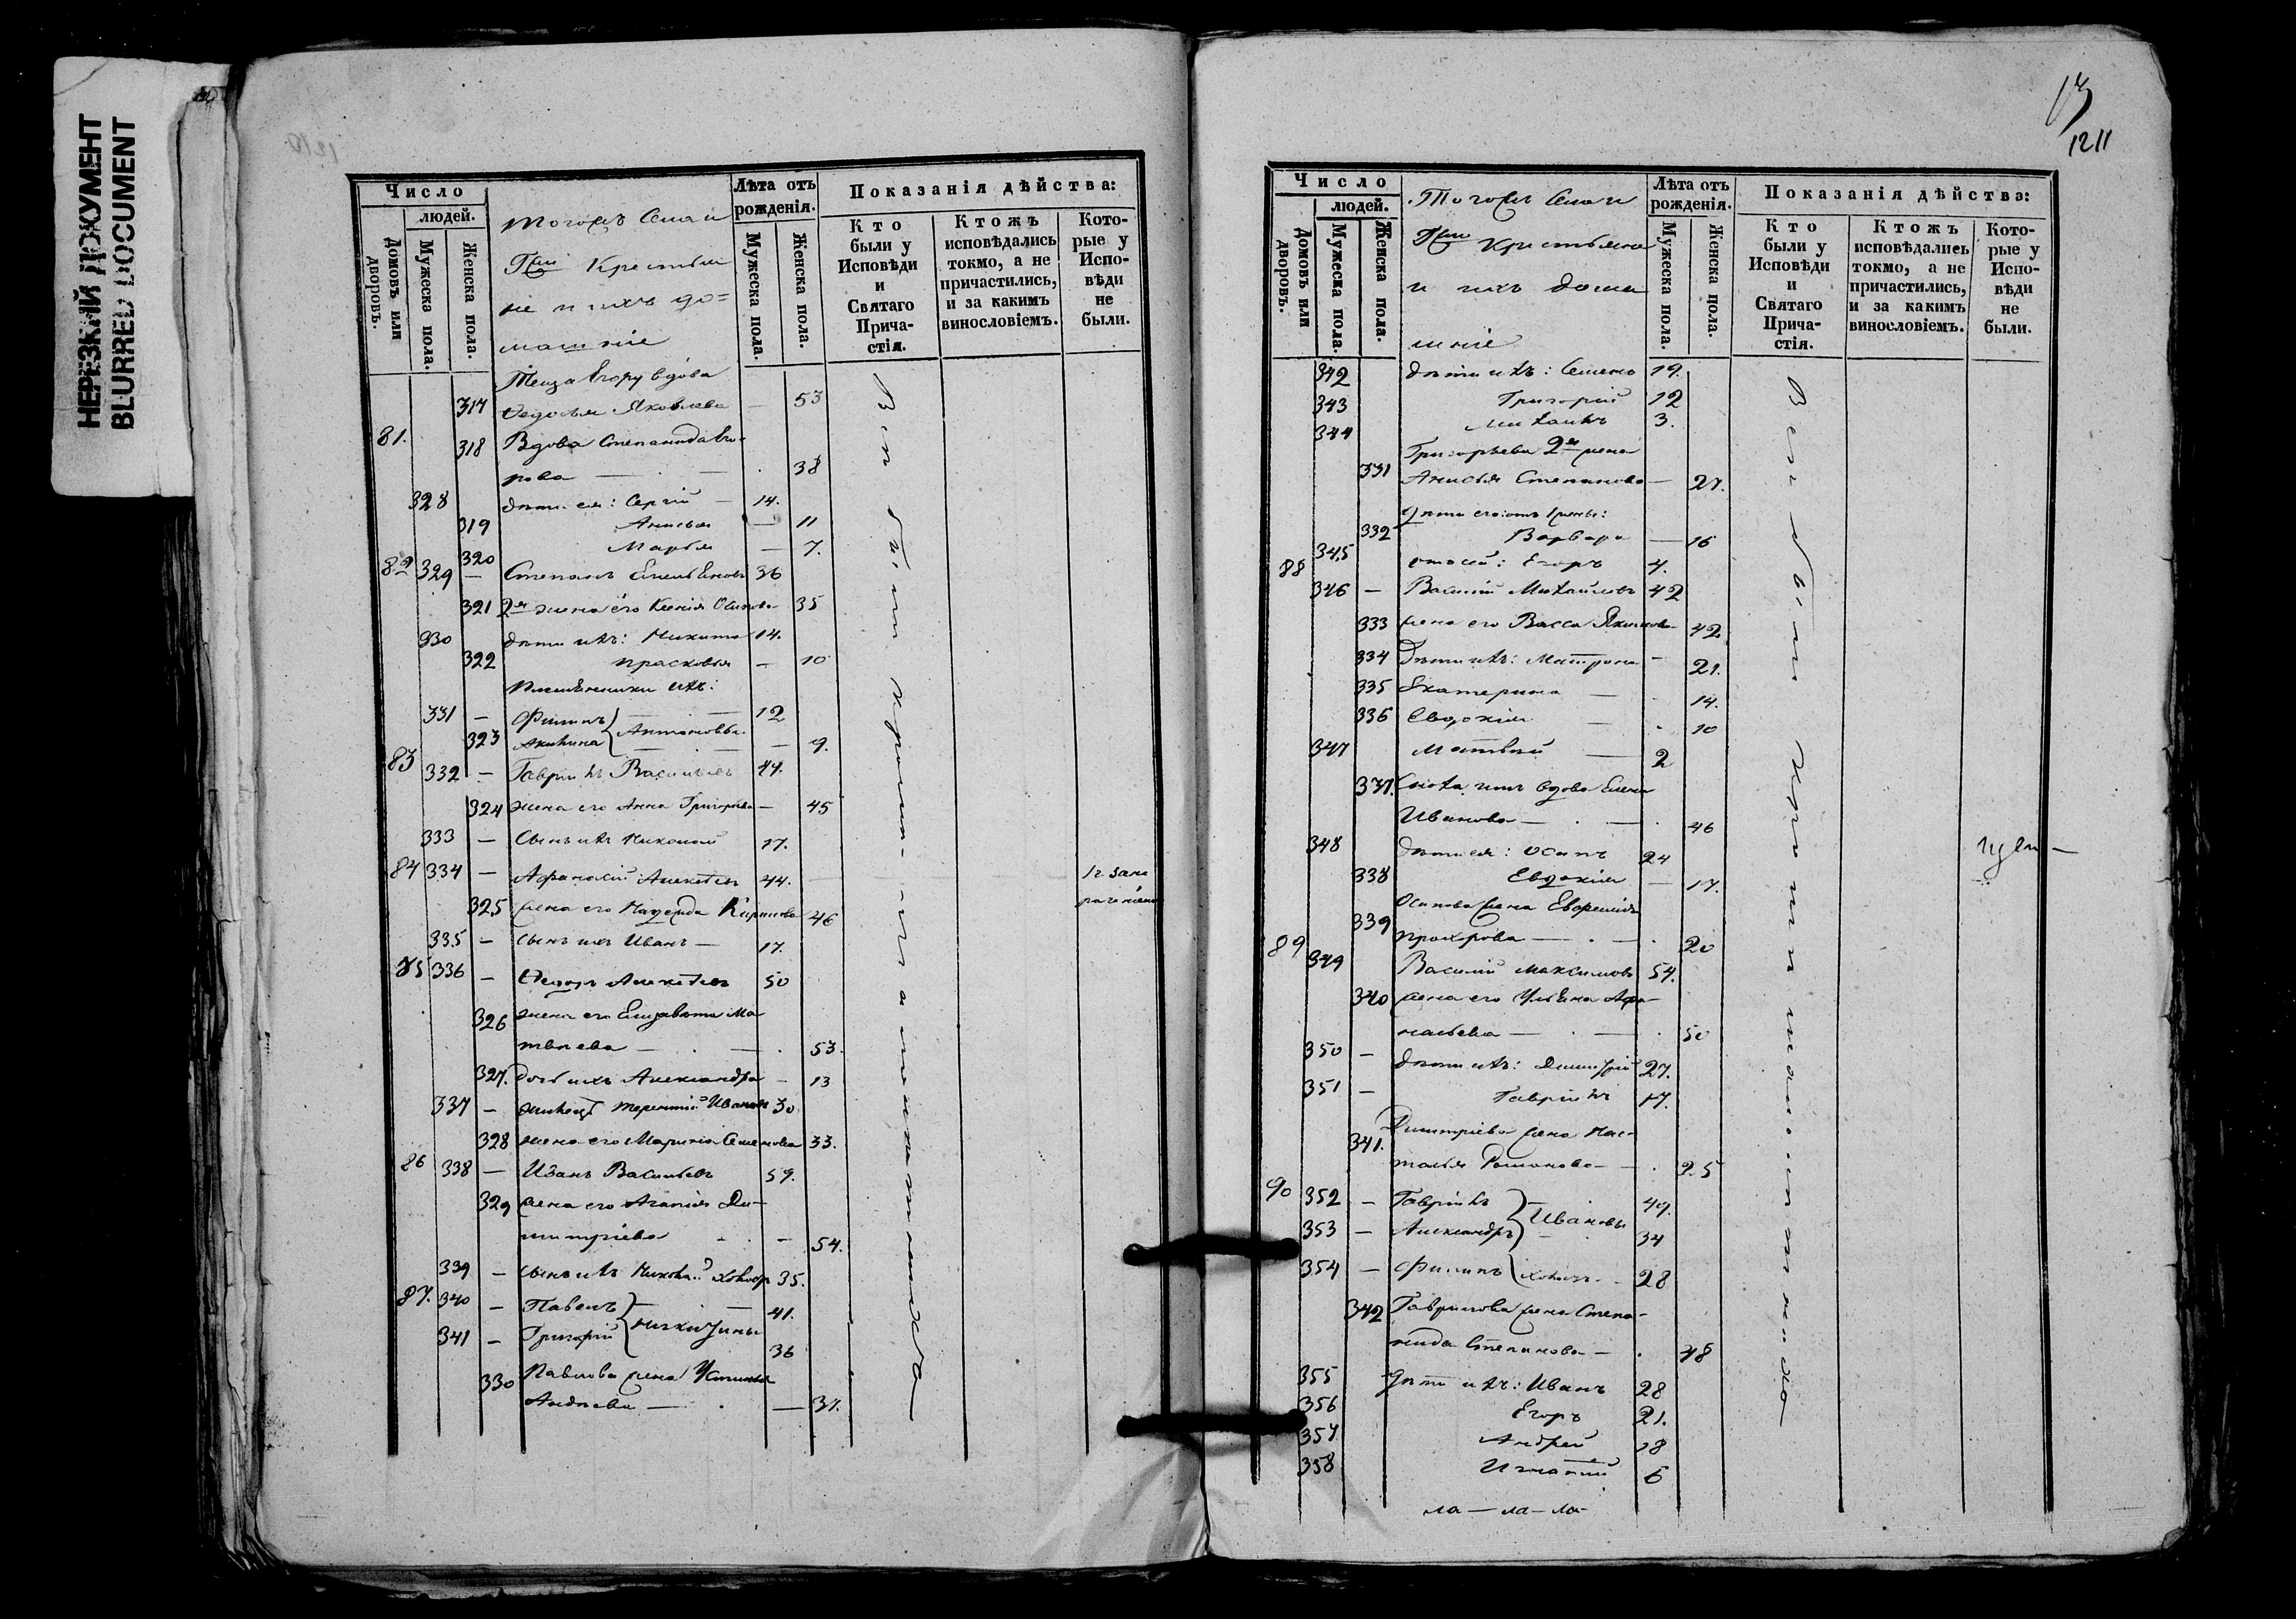 НЕРЕЗКИЙ ДОКУМЕНТ
BLURRED DOCUMENT
Число
людей.
Домовъ или дворовъ.
Мужеска пола.
Женска пола.
Тогожъ Села и
Крестья
не и ихъ до=
машніе
Лѣта отъ рожденія.
Мужеска пола.
Женска пола.
Показанія дѣйства:
Кто были у Исповѣди и Святаго Прича-стія.
Ктожъ исповѣдались токмо, а не причастились, и за какимъ винословіемъ.
Кото-рые у Испо-вѣди не были.
Теща Егору вдова
317 Ѳедосья Яковлева — 53
81. 318 Вдова Степанида Его-
рова — 38
328 дѣти ея: Сергій — 14.
319 Анисья — 11
320 Марѳа — 7.
82 329 — Степанъ Емельяновъ 36
321 2я жена его Ксенія Осипова 35
330 дѣти ихъ: Никита 14.
322 Прасковья — 10
Племянники ихъ:
331 — Филипъ — 12
323 Акилина } Антоновы — 9.
83 332 — Гавріилъ Васильевъ 44.
324 жена его Анна Григорьева — 45
333 — Сынъ ихъ Николай 17.
84 334 — Афанасій Алексѣевъ 44.
325 жена его Надежда Кирилова 46
335 — сынъ ихъ Иванъ — 17.
85 336 — Ѳедоръ Алексѣевъ 50
326 жена его Елизавета Ма
твѣева — 53.
327. дочь ихъ Александра — 13
337 — Терентій Ивановъ 30
328 жена его Марина Семенова 33.
86 338 — Иванъ Васильевъ 59.
329 жена его Агапія Ди-
митріева — 54.
339 — сынъ ихъ Николай холостъ 35.
87. 340 — Павелъ — 41.
341 — Григорій } Никитины 36
330 Павлова жена Устинья
Андреева — 37.
Всѣ были и причастились
13
1211
Число
людей.
Домовъ или дворовъ.
Мужеска пола.
Женска пола.
Тогожъ Села и
Крестьяне
и ихъ дома
шніе
Лѣта отъ рожденія.
Мужеска пола.
Женска пола.
Показанія дѣйства:
Кто были у Исповѣди и Святаго Прича-стія.
Ктожъ исповѣдались токмо, а не причастились, и за какимъ винословіемъ.
Кото-рые у Испо-вѣди не были.
342 дѣти ихъ: Семенъ 19.
343 Григорій 12
344 Михаилъ 3.
Григорьева 2я жена
331 Анисья Степанова — 27.
Дѣти его отъ 1 жены:
332 Варвара — 16
345 отъ сей: Егоръ 4.
88 346 — Василій Михайловъ 42
333 жена его Васса 42
334 Дѣти ихъ: Матрона — 21.
335 Екатерина — 14.
336 Евдокія — 10
347 Матвѣй — 2
337. Сноха ихъ вдова Елена
Иванова — 46
348 дѣти ея: Осипъ 24
338 Евдокія — 17.
Осипова жена Евфимія
339 Прохорова — 20
89 349 Василій Максимовъ 54.
340 жена его Ульяна Афа-
насьева — 50
350 — дѣти ихъ: Димитрій 27.
351 — Гавріилъ 17.
Димитріева жена На-
341. талья Романова — 25
90 352 — Гавріилъ — 49.
353 — Александръ } Ивановы 34
354 — Филипъ холостъ 28
342 Гаврилова жена Степа-
нида Степанова — 48
355 Дѣти ихъ: Иванъ 28
356 Егоръ 21.
357 Андрей 18
358 Игнатій 6
Всѣ были и причастились